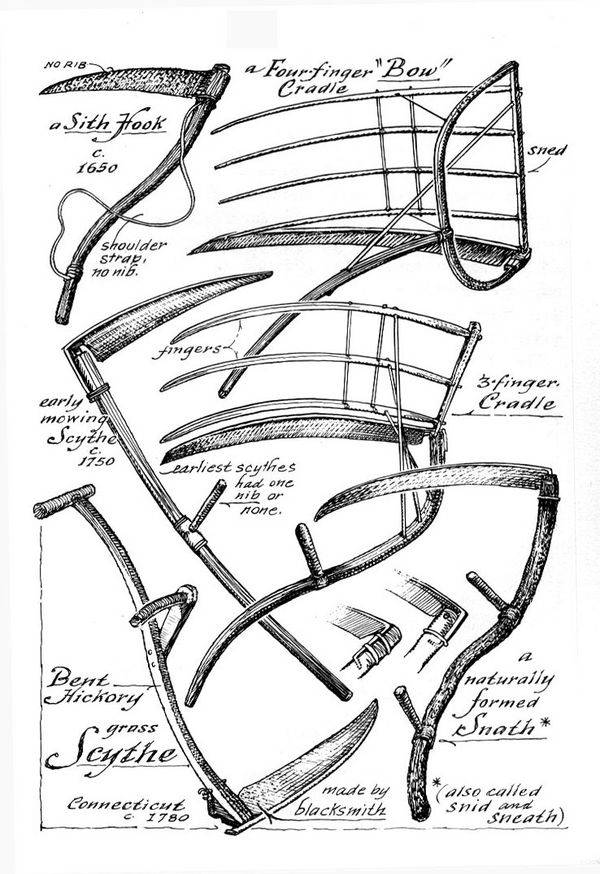 NO RIB
a Sith Hook
c.
1650
shoulder
strap,
no nib.
a Four-finger "Bow"
Cradle
sned
fingers
3-finger
Cradle
early
mowing
Scythe
c.
1750
earliest scythes
had one
nib or
none.
Bent
Hickory
grass
Scythe
Connecticut
c. 1780
made by
blacksmith
a
naturally
formed
Snath*
*(also called
snid and
sneath)